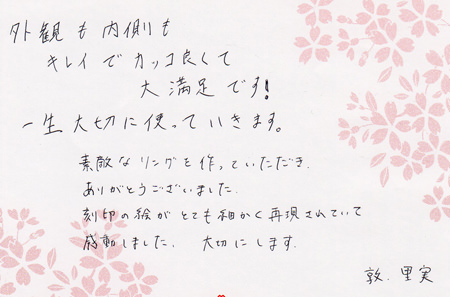 外観も内側も
キレイでカッコ良くて
大満足です!
一生大切に使っていきます。
素敵なリングを作っていただき.
ありがとうございました.
刻印の絵がとても細かく再現されていて
感動しました. 大切にします.
敦. 里実